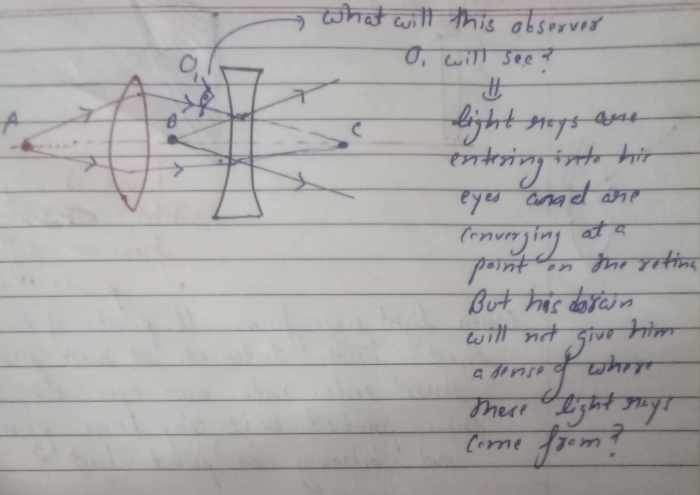 what will this observer
O, will see?
O,
A
B
C
light rays are
entering into his
eyes and are
converging at a
point on the retina
But his brain
will not give him
a sense of where
these light rays
come from?